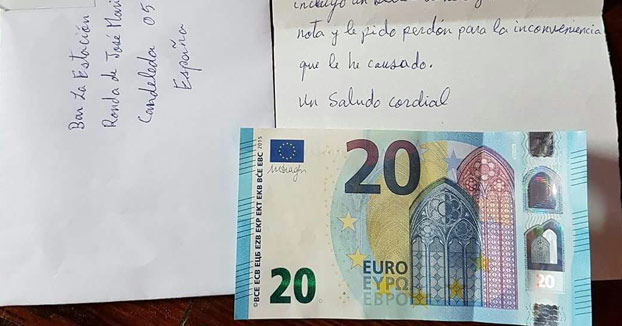 Bar La Estación
Ronda de José
Candeleda 05
España
nota y le pido perdón para la inconveniencia
que le he causado.
Un Saludo cordial
©BCE ECB ЕЦБ EZB EKP EKT EKB BĊE EBC 2015
20
20
EURO
ΕΥΡΩ
ЕВРО
20